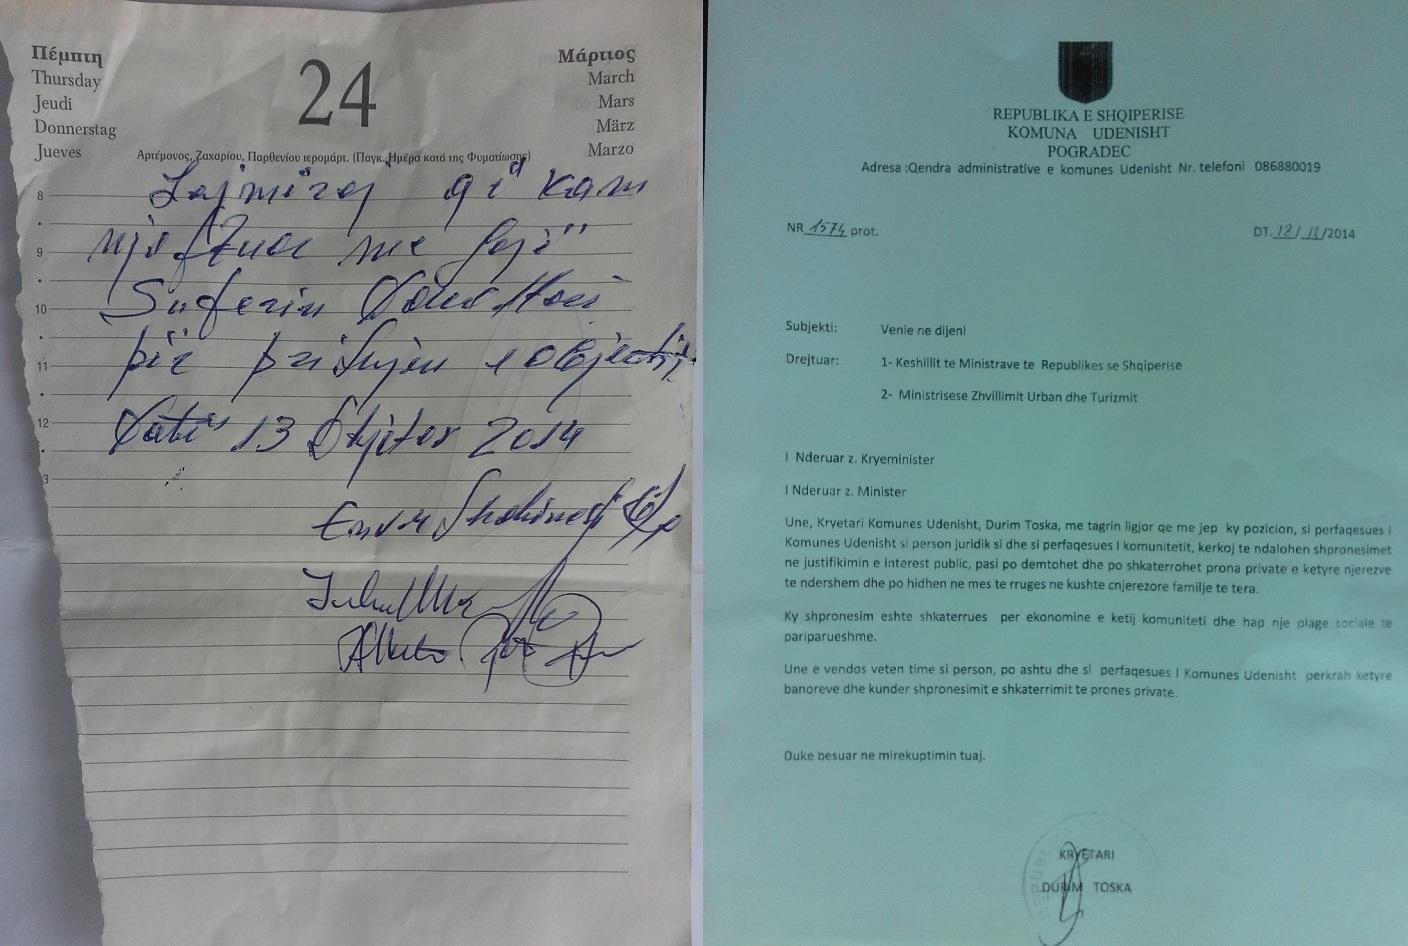 Πέμπτη
Thursday
Jeudi
Donnerstag
Jueves
24
Μάρτιος
March
Mars
März
Marzo
Αρτέμονος, Ζαχαρίου, Παρθενίου ιερομάρτ. (Παγκ. Ημέρα κατά της Φυματίωσης)
8
9
10
11
12
3
Lajmëroj që kam
njoftuar me gojë
për prishjen e objektit
Datë 13 Dhjetor 2014
REPUBLIKA E SHQIPERISE
KOMUNA UDENISHT
POGRADEC
Adresa :Qendra administrative e komunes Udenisht Nr. telefoni 086880019
NR 1574 prot.
DT. /2014
Subjekti: Venie ne dijeni
Drejtuar: 1- Keshillit te Ministrave te Republikes se Shqiperise
2- Ministrisese Zhvillimit Urban dhe Turizmit
I Nderuar z. Kryeminister
I Nderuar z. Minister
Une, Kryetari Komunes Udenisht, Durim Toska, me tagrin ligjor qe me jep ky pozicion, si perfaqesues I
Komunes Udenisht si person juridik si dhe si perfaqesues I komunitetit, kerkoj te ndalohen shpronesimet
ne justifikimin e interest public, pasi po demtohet dhe po shkaterrohet prona private e ketyre njerezve
te ndershem dhe po hidhen ne mes te rruges ne kushte cnjerezore familje te tera.
Ky shpronesim eshte shkaterrues per ekonomine e ketij komuniteti dhe hap nje plage sociale te
pariparueshme.
Une e vendos veten time si person, po ashtu dhe si perfaqesues I Komunes Udenisht perkrah ketyre
banoreve dhe kunder shpronesimit e shkaterrimit te prones private.
Duke besuar ne mirekuptimin tuaj.
KRYETARI
DURIM TOSKA